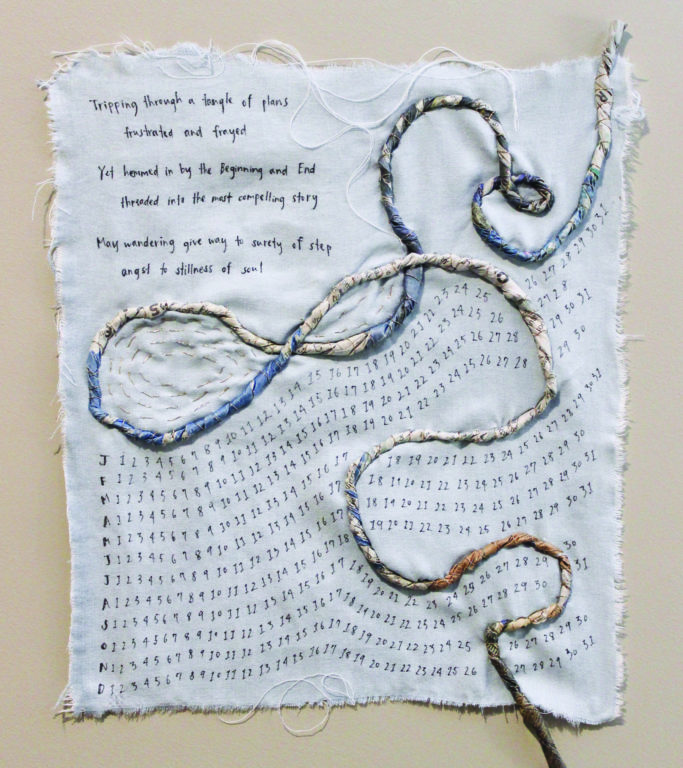 Tripping through a tangle of plans
frustrated and frayed
Yet hemmed in by the Beginning and End
threaded into the most compelling story
May wandering give way to surety of step
angst to stillness of soul
J 1 2 3 4 5 6 7 8 9 10 11 12 13 14 15 16 17 18 19 20 21 22 23 24 25 26 27 28 29 30 31
F 1 2 3 4 5 6 7 8 9 10 11 12 13 14 15 16 17 18 19 20 21 22 23 24 25 26 27 28
M 1 2 3 4 5 6 7 8 9 10 11 12 13 14 15 16 17 18 19 20 21 22 23 24 25 26 27 28 29 30 31
A 1 2 3 4 5 6 7 8 9 10 11 12 13 14 15 16 17 18 19 20 21 22 23 24 25 26 27 28 29 30
M 1 2 3 4 5 6 7 8 9 10 11 12 13 14 15 16 17 18 19 20 21 22 23 24 25 26 27 28 29 30 31
J 1 2 3 4 5 6 7 8 9 10 11 12 13 14 15 16 17 18 19 20 21 22 23 24 25 26 27 28 29 30
J 1 2 3 4 5 6 7 8 9 10 11 12 13 14 15 16 17 18 19 20 21 22 23 24 25 26 27 28 29 30 31
A 1 2 3 4 5 6 7 8 9 10 11 12 13 14 15 16 17 19 20 22 23 24 25 26 27 28 29 30 31
S 1 2 3 4 5 6 7 8 9 10 11 12 13 14 15 16 17 18 19 20 21 22 23 24 25 26 27 28 29 30
O 1 2 3 4 5 6 7 8 9 10 11 12 13 14 15 16 17 18 19 20 21 22 23 24 25 26 27 28 29 30 31
N 1 2 3 4 5 6 7 8 9 10 11 12 13 14 15 16 17 18 19 20 21 22 23 24 25 26 27 28 29 30
D 1 2 3 4 5 6 7 8 9 10 11 12 13 14 15 16 17 18 19 20 21 22 23 24 25 26 27 28 29 30 31